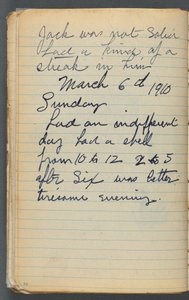 Jack was not Sober
had a kind of a
streak in him
March 6th 1910
Sunday
had an indifferent
day had a spell
from 10 to 12 2 to 5
after Six was better
tiresome evening.